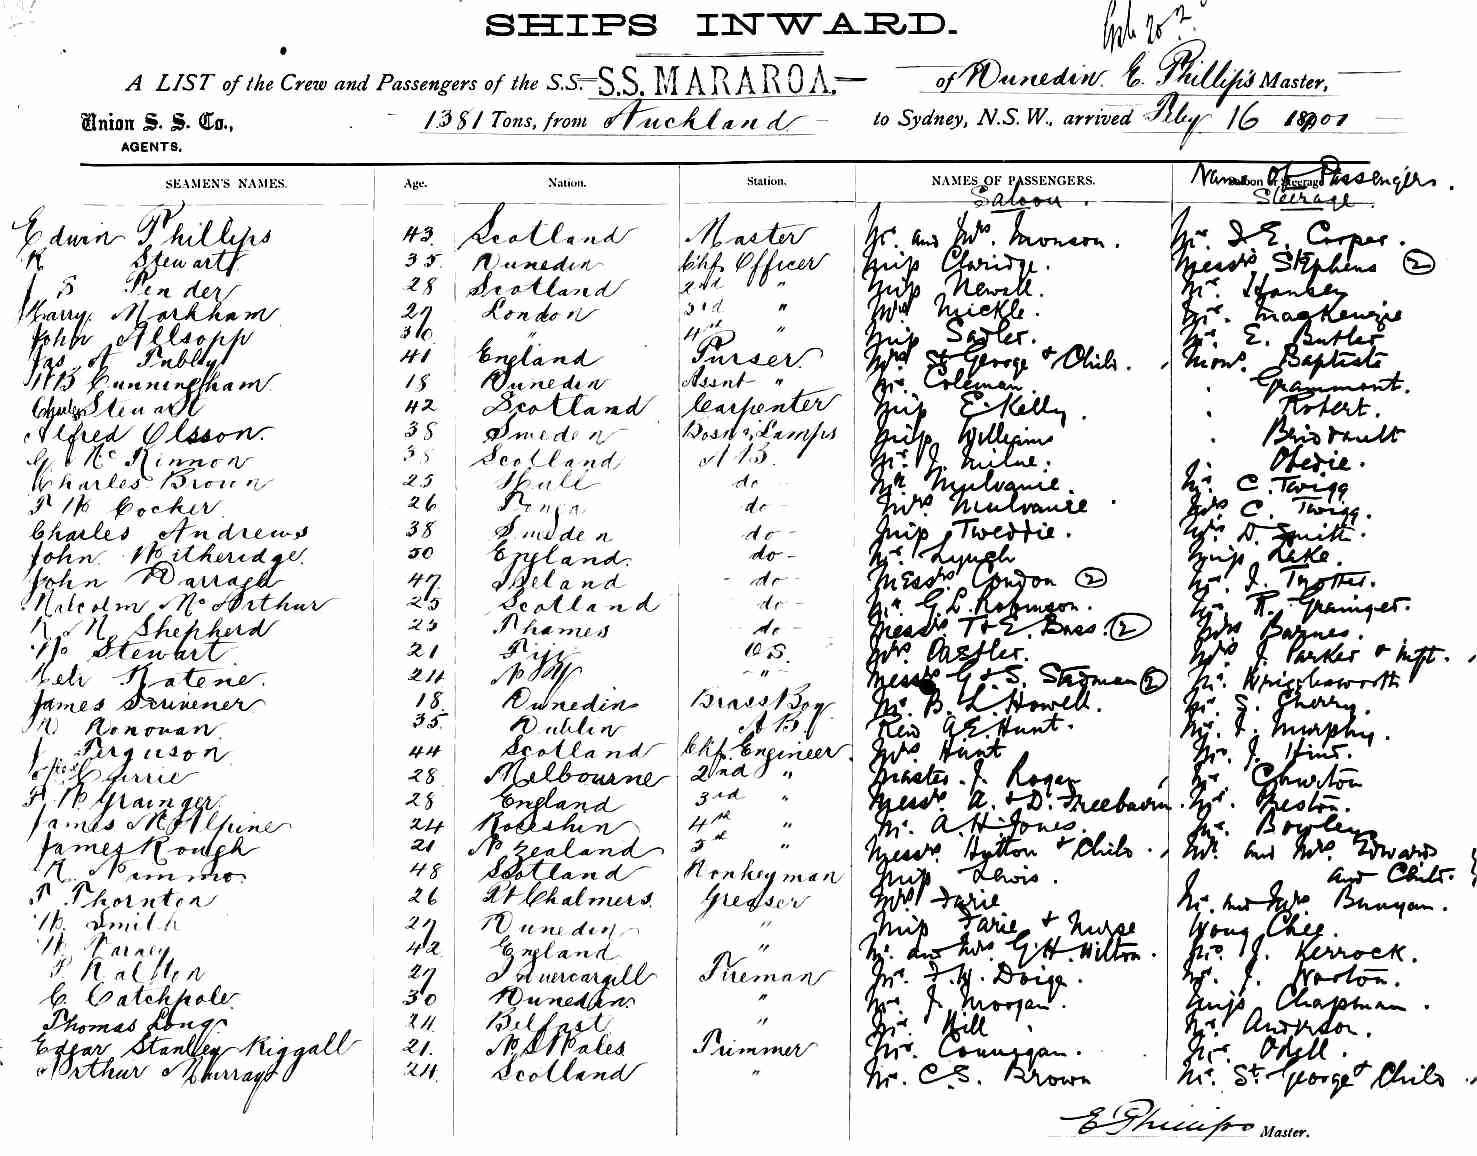 SHIPS INWARD.
A LIST of the Crew and Passengers of the S.S. S.S. MARAROA, of Dunedin. E. Phillips Master,
Union S. S. Co., 1381 Tons, from Auckland to Sydney, N.S.W., arrived Feby 16 1901
AGENTS.
SEAMEN'S NAMES. Age. Nation. Station. NAMES OF PASSENGERS. Names of Passengers.
Saloon. Steerage.
Edwin Phillips 43 Scotland Master Mr. and Mrs. Monson. Mr. D. E. Cooper.
R Stewart 35 Dunedin Chf. Officer Miss Claridge. Messrs Stephens 2
J S Pender 28 Scotland 2nd " Miss Newell. Mr. Hansen
Harry Markham 27 London 3rd " Mrs Mickle. Mr. Mackenzie
John Allsopp 30 " 4th " Miss Sadler. Mr. E. Butler
Jas. A Tubley 41 England Purser Mrs St George & Child. Mons. Baptiste
W B Cunningham 18 Dunedin Assnt " Mr. Coleman. Grammont.
Charles Stewart 42 Scotland Carpenter Miss E. Kelly. Robert.
Alfred Olsson. 38 Sweden Bosn & Lamps Miss Williams
Mc Kinnon 38 Scotland A B. Mr. J. Milne. Obedie.
Charles Brown 25 Hull do - Mr Mulvanie. Mr. C. Twigg
F W Cocker 26 do - Mrs. Mulvanie Mrs C. Twigg.
Charles Andrews 38 Sweden do - Miss Tweddie. Mrs. D. Smith.
John Witheridge. 50 England. do - Mr. Lynch Miss Lake.
John Darragh 47 Ireland - do - Messrs Condon 2 Mr. J. Trotter.
Malcolm Mc Arthur 25 Scotland - do - Mr. G. L. Robinson. Mr. R. Grainger.
R. N. Shepherd 25 Thames - do - Messrs T & E. Bass. 2 Mrs Barnes.
W Stewart 21 Fiji O S. Mrs. Castler. Mrs J. Parker & Inft.
Katene. 24 N Z - " - Messrs G & S. Stedman 2 Mr. Wrigglesworth
James Scrivener 18 Dunedin Brass Boy Mr. B. L. Howell. Mr. S. Cherry.
D Donovan. 35 Dublin A B Rev A. E. Hunt. Mr. J. Murphy.
J. Ferguson 44 Scotland Chf. Engineer Mrs. Hunt Mr. J. Hind.
Currie 28 Melbourne 2nd " Master. J. Rogan Mr. Cawston
F. W Grainger 28 England 3rd " Messrs. A. & D. Freebairn. Mr. Preston.
James McAlpine 24 4th " Mr. A. H. Jones. Mr. Bowley
James Rough 21 N Zealand 5th " Messrs. Hutton & Child. Mr. and Mrs. Edwards
R. Nimmo. 48 Scotland Donkeyman Miss Lewis. and Child.
F Thornton 26 Pt Chalmers. Greaser Mrs. Farie Mr. and Mrs Bunyan.
W. Smith 27 Dunedin " Miss Farie & Nurse Woug Chee.
W. Varney 42 England " Mr. and Mrs G. H. Hilton. Mr. J. Kerrock.
P Ralston 27 Invercargill Fireman Mr. J. W. Doige. Mr. J. Norton.
C. Catchpole 30 Dunedin " Mr. J. Morgan. Miss Chapman.
Thomas Long 24 Belfast " Mr. Hill Mr. Anderson.
Edgar Stanley Riggall 21. N. S Wales Trimmer Mr. Connegan. Mr. Odell.
Arthur Murray 24 Scotland " Mr. C. S. Brown Mr. St. George & Child
E Phillips Master.